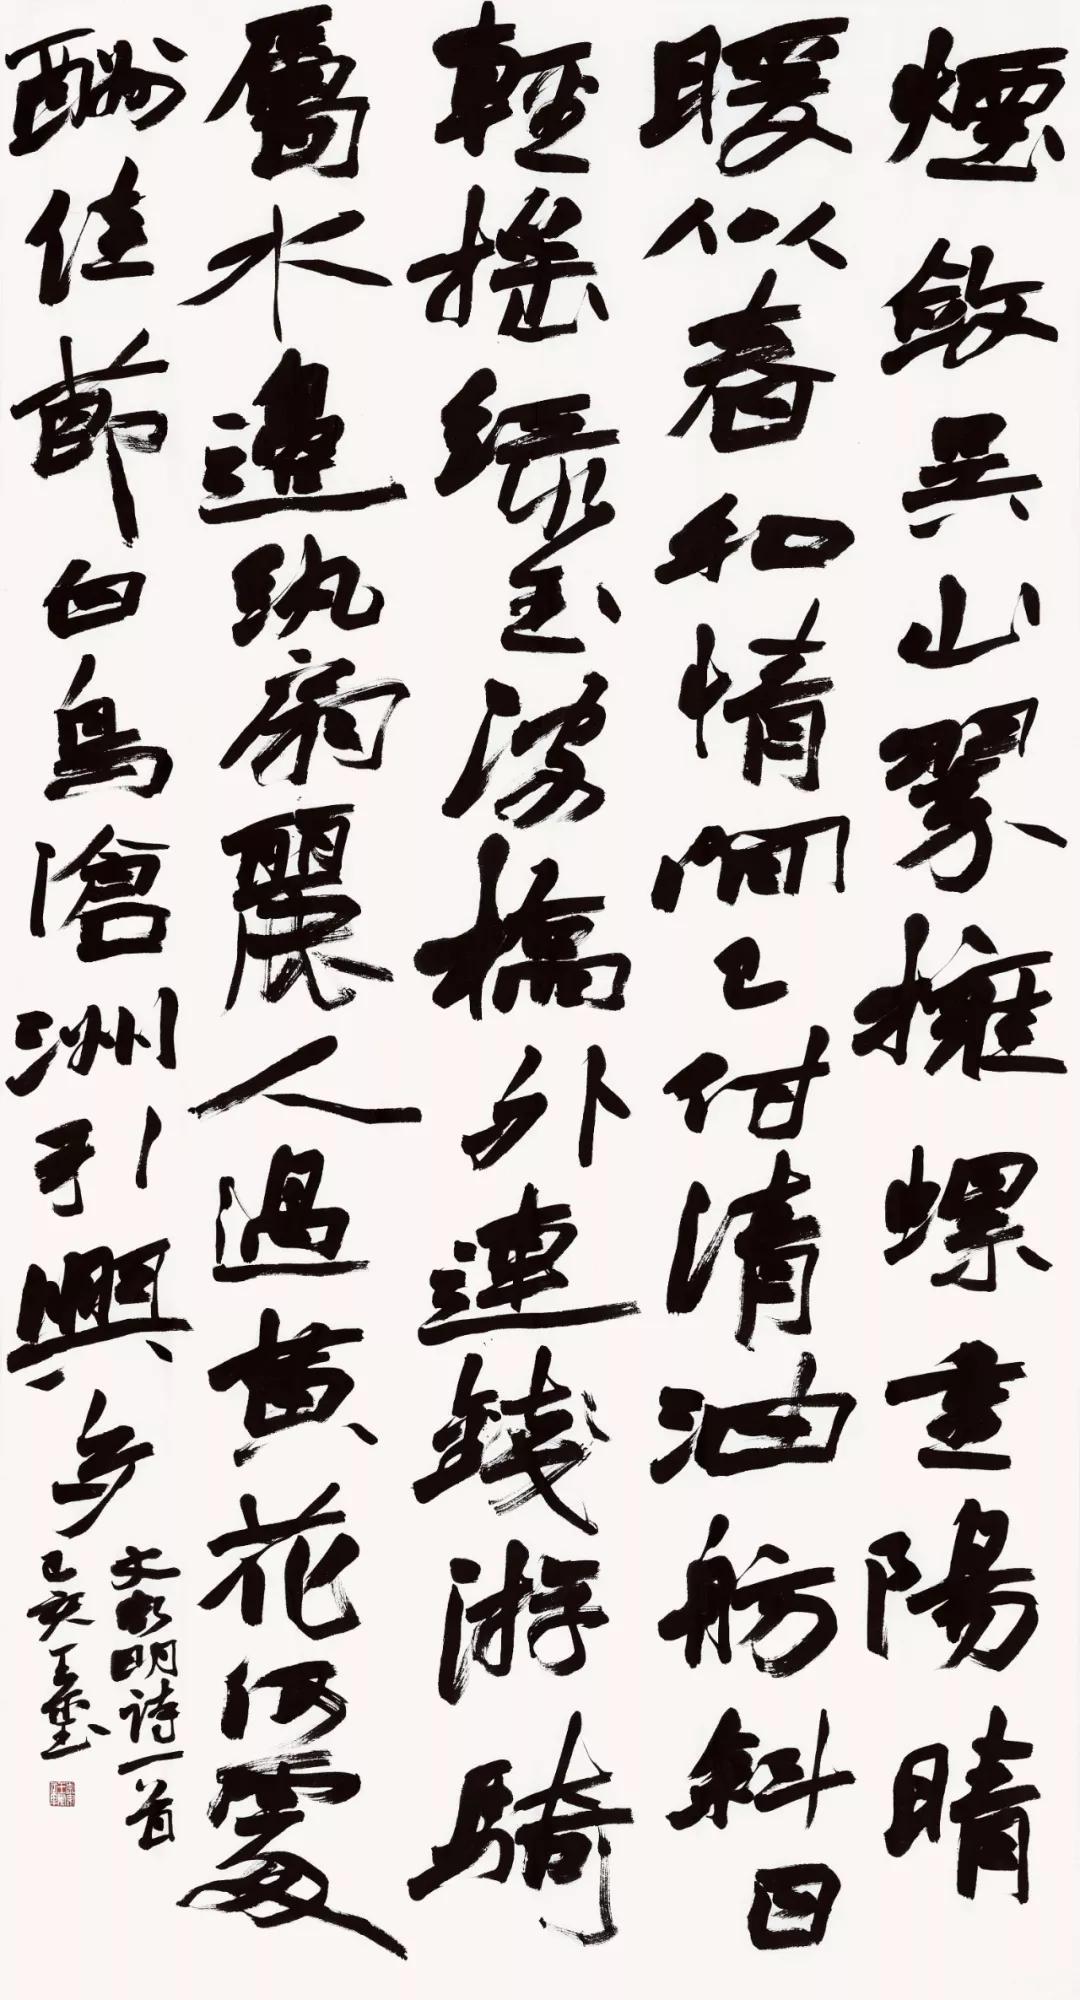 煙斂吳山翠擁螺重陽晴
暖似春和情閒已付清油舫斜日
輕搖綠玉波橋外連錢游騎
屬水邊紈扇麗人過黃花何處
酬佳節白鳥滄洲引興多
文徵明詩一首
己亥王